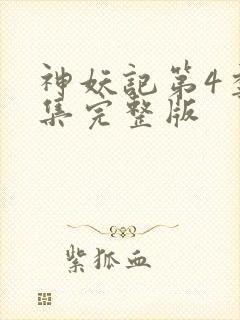 神妖記第4季
集完整版
紫狐血